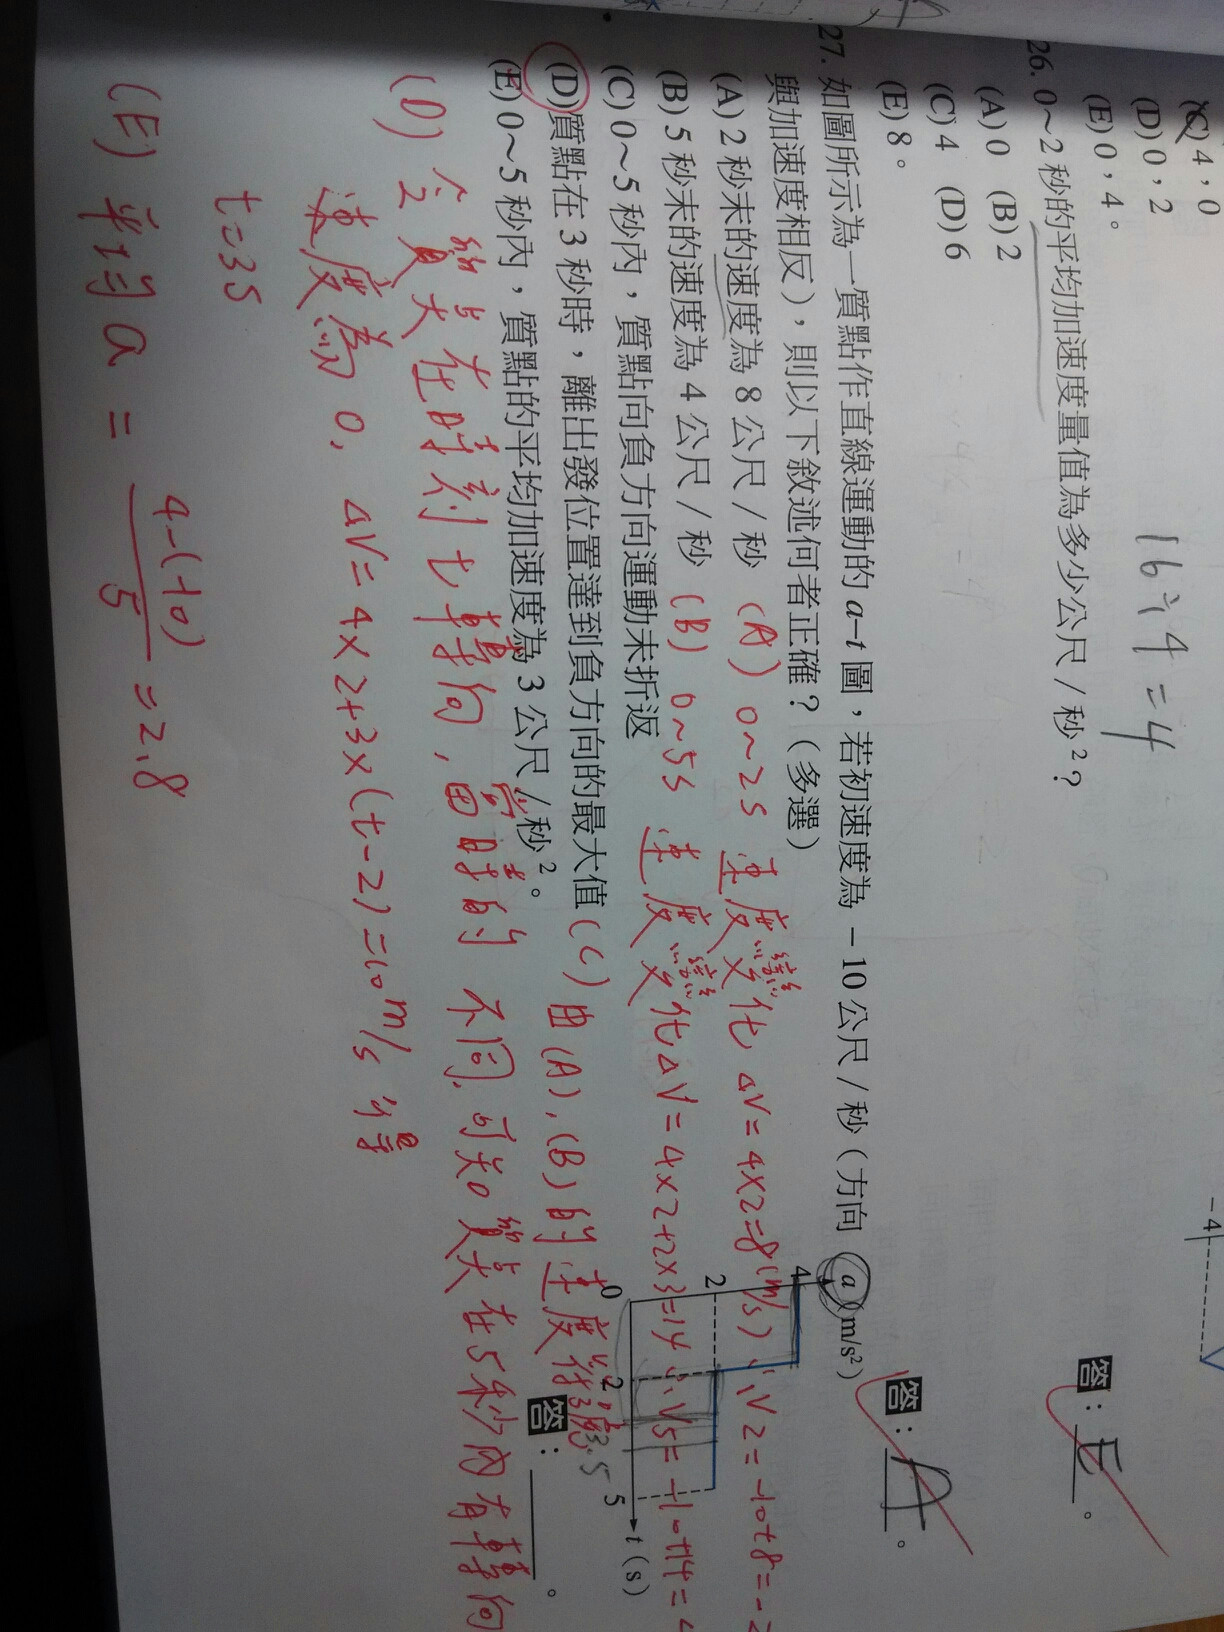 (C) 4，0
(D) 0，2
(E) 0，4。
16÷4=4
26. 0～2 秒的平均加速度量值為多少公尺／秒²？
(A) 0 (B) 2
(C) 4 (D) 6
(E) 8。
答：E。
答：A。
27. 如圖所示為一質點作直線運動的 a–t 圖，若初速度為 －10 公尺／秒（方向
與加速度相反），則以下敘述何者正確？（多選）
(A) 2 秒末的速度為 8 公尺／秒
(B) 5 秒末的速度為 4 公尺／秒
(C) 0～5 秒內，質點向負方向運動未折返
(D) 質點在 3 秒時，離出發位置達到負方向的最大值
(E) 0～5 秒內，質點的平均加速度為 3 公尺／秒²。
答：。
a (m/s²)
4
2
0
2
5
t (s)
3.5
-4
(A) 0~2s 速度變化 ΔV=4×2=8(m/s) ∴V2=-10+8=-2
(B) 0~5s 速度變化 ΔV=4×2+2×3=14 ∴V5=-10+14=4
(C) 由(A),(B)的速度
不同,可知質點在5秒內有轉向
(D) 令質點在時刻t轉向,當時的
速度為0, ΔV=4×2+3×(t-2)=10m/s 得
t=3s
(E) 平均a = 4-(-10) / 5 =2.8